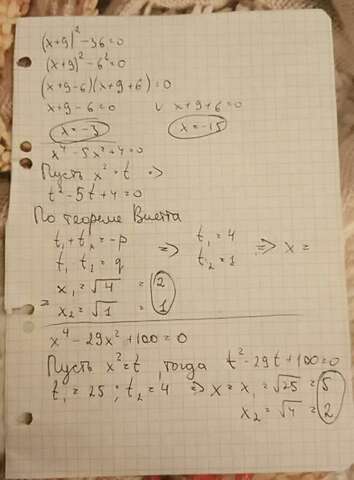 (x+9)² -36=0
(x+9)² -6²=0
(x+9-6)(x+9+6)=0
x+9-6=0 ∨ x+9+6=0
x=-3 x=-15
x⁴-5x²+4=0
Пусть x²=t =>
t²-5t+4=0
По теореме Виета
t₁+t₂=-p => t₁=4 => x=
t₁ t₂=q t₂=1
x₁=√4 =2
= x₂=√1 =1
x⁴-29x²+100=0
Пусть x²=t, тогда t²-29t+100=0
t₁=25; t₂=4 => x=x₁=√25=5
x₂=√4=2